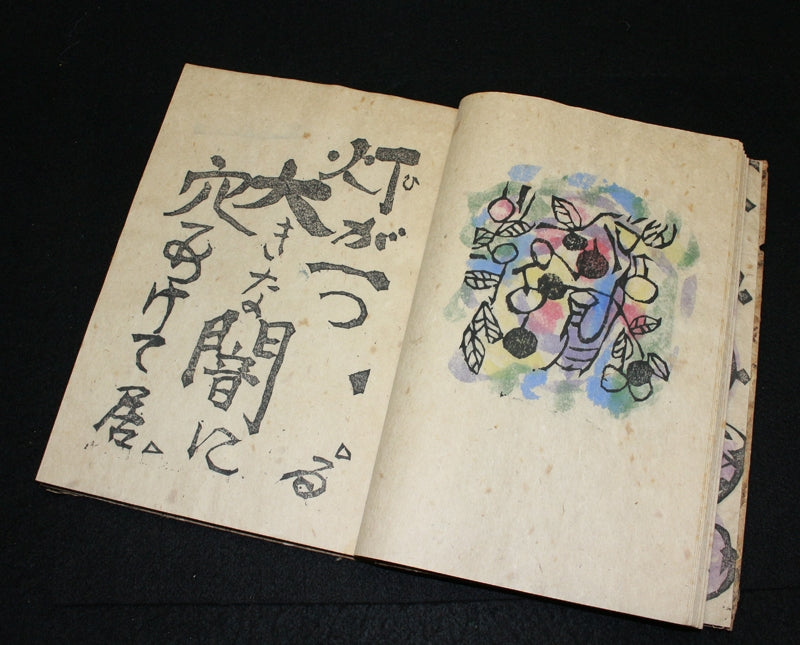 灯が一つ
大きな闇に
穴あけて居
る
ひ